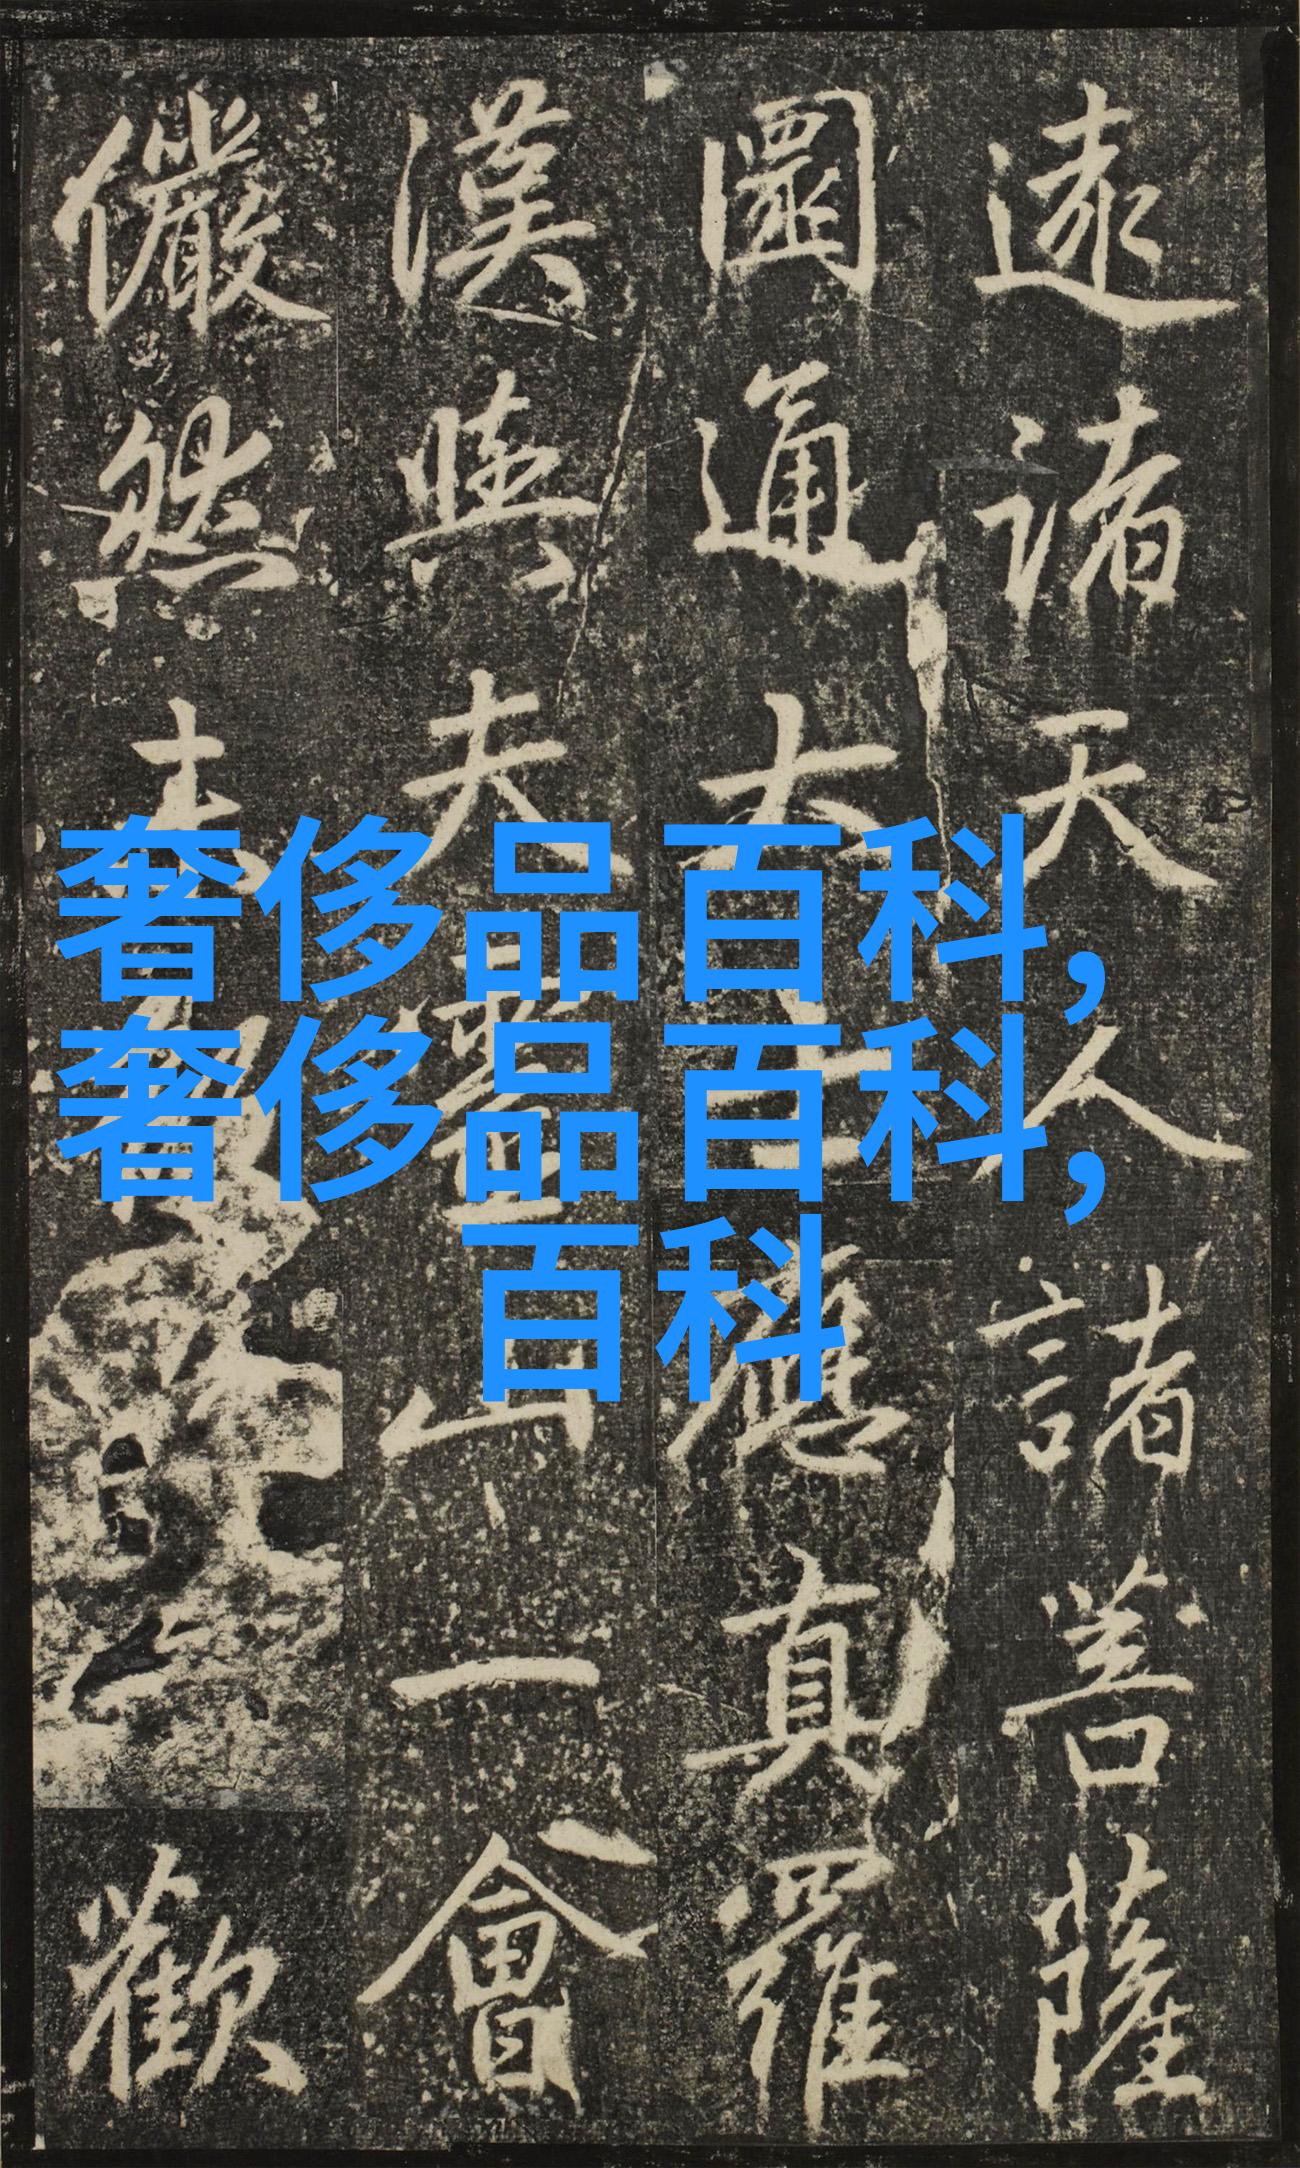 遠諸天人諸菩薩
通大士應真羅
漢與夫靈山一會
儼然未歡
奢侈品百科,
奢侈品百科,
百科